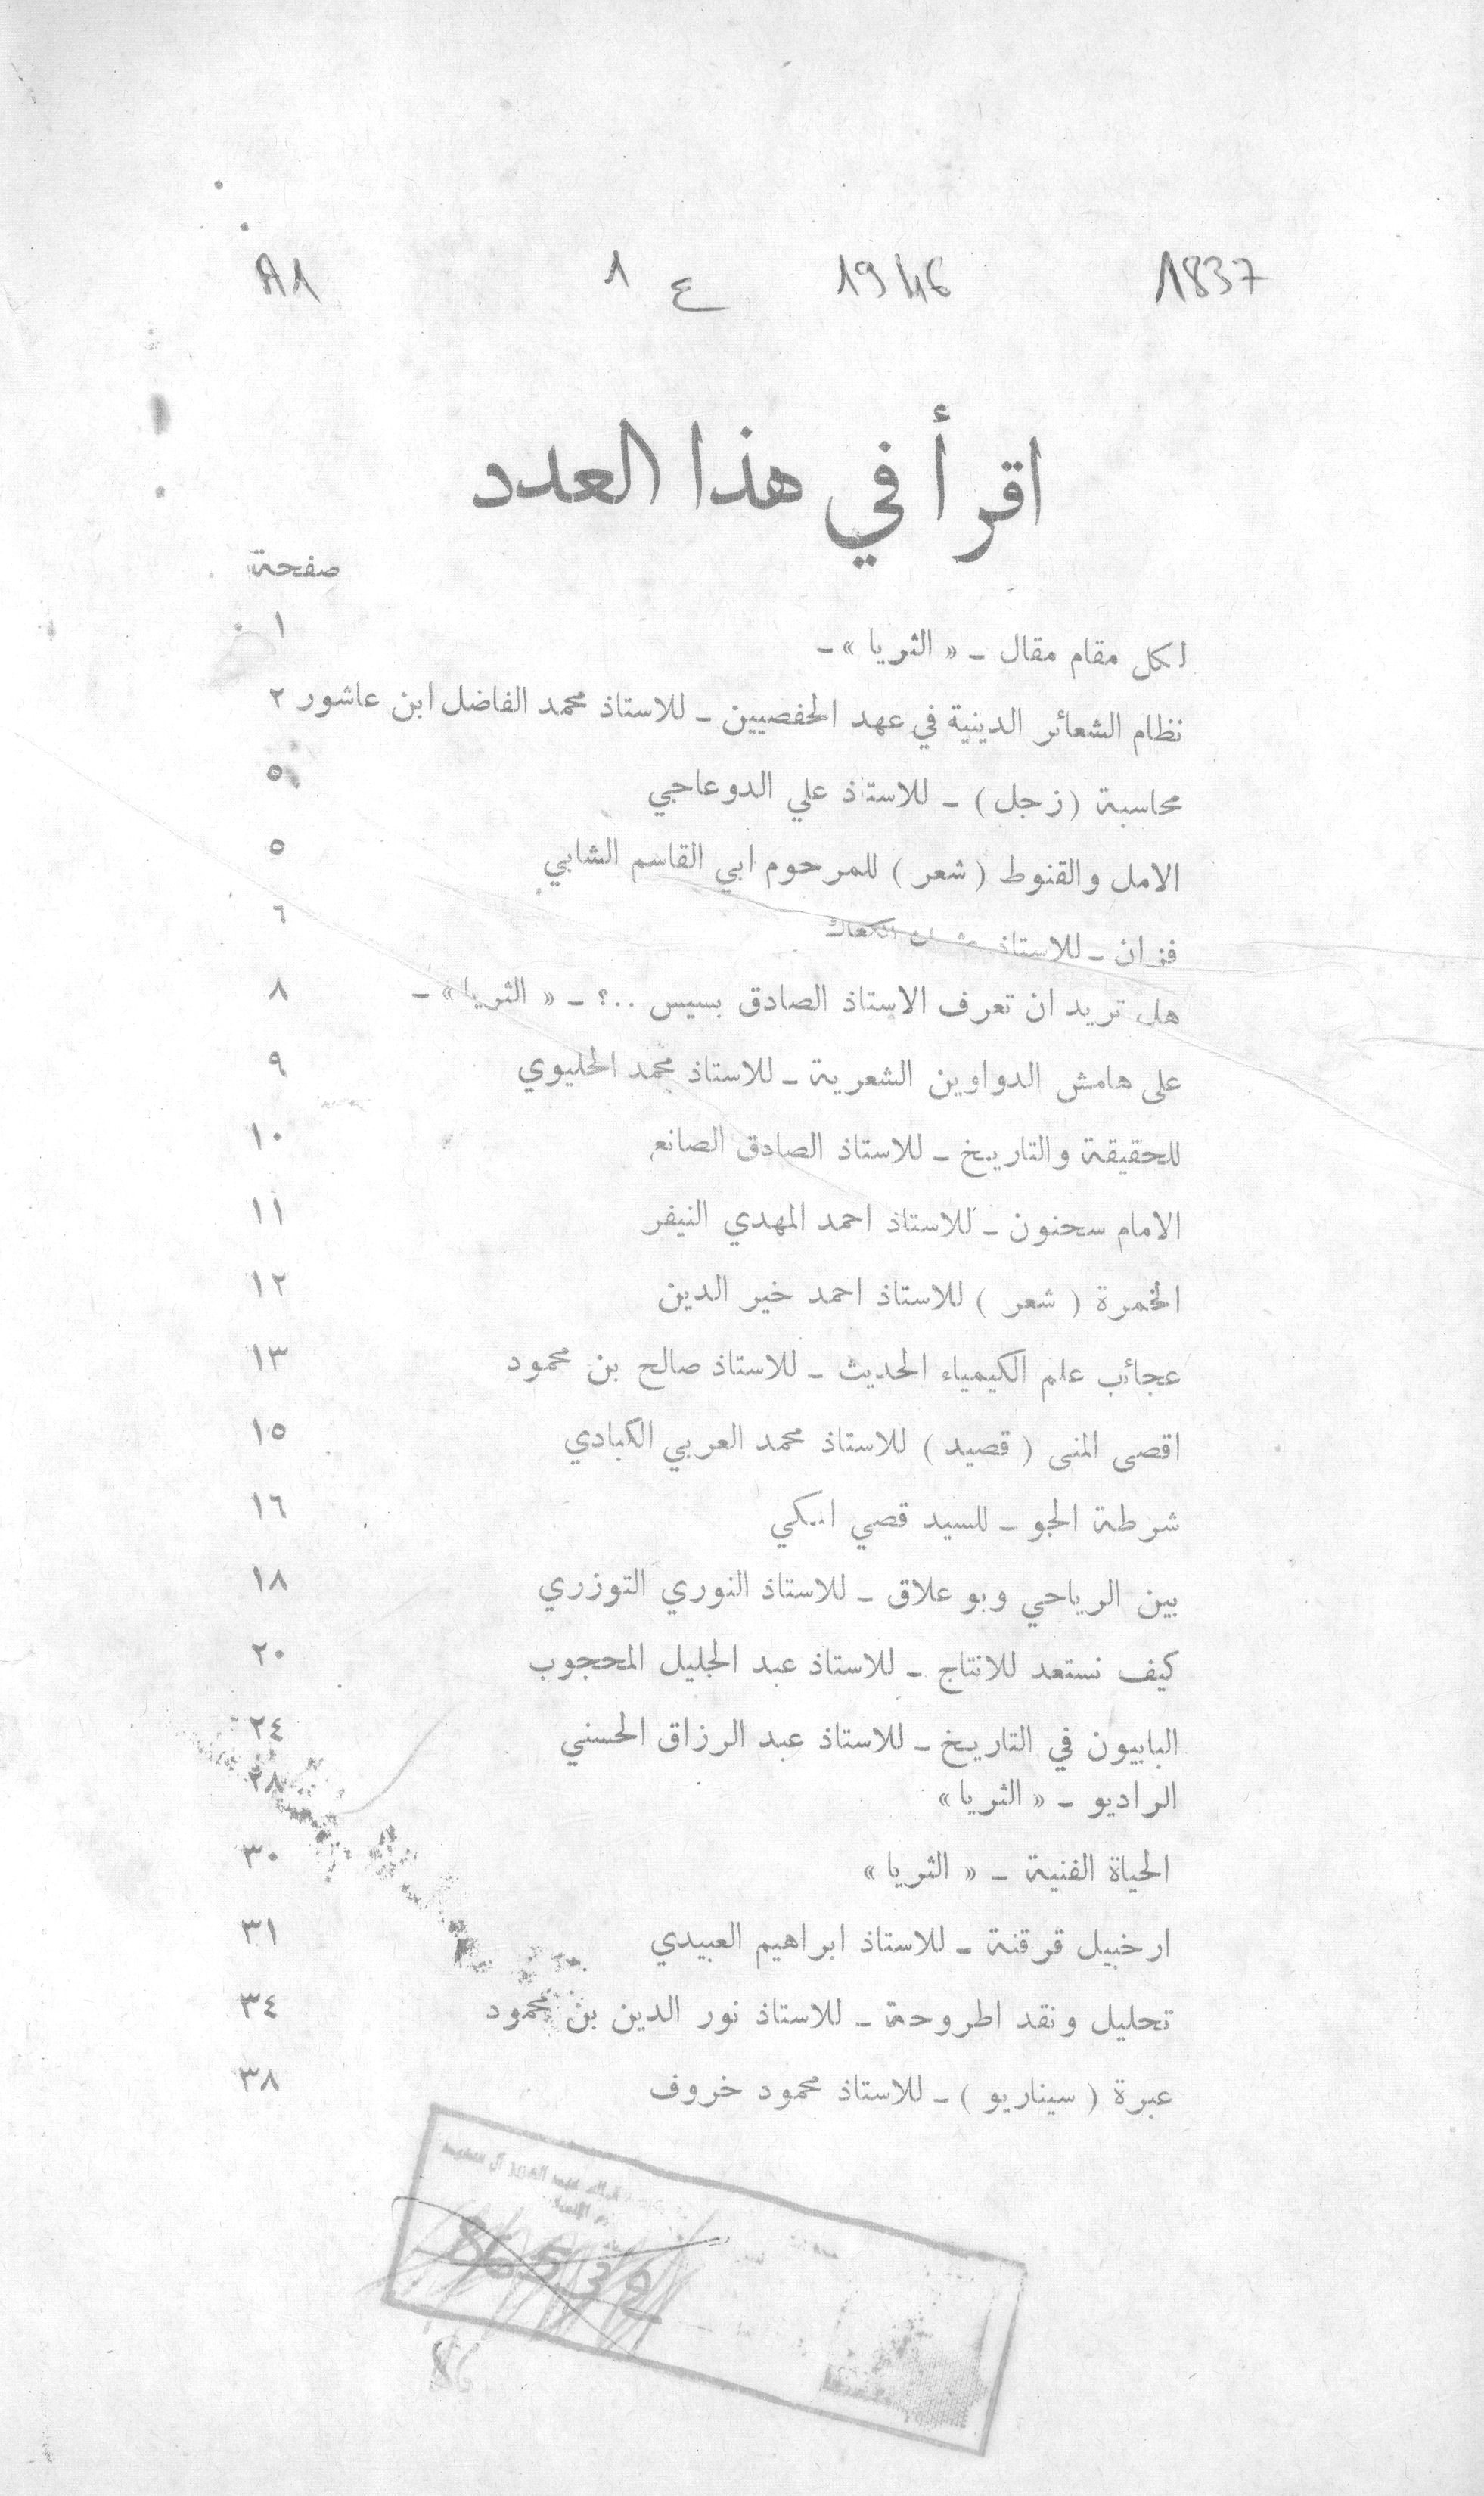 1837 1946 ع 1 A1
اقرأ في هذا العدد
صفحة
لكل مقام مقال ـ « الثريا » ـ ١
نظام الشعائر الدينية في عهد الحفصيين ـ للاستاذ محمد الفاضل ابن عاشور ٢
محاسبة (زجل) ـ للاستاذ علي الدوعاجي ٥
الامل والقنوط ( شعر ) للمرحوم ابي القاسم الشابي ٥
فزان ـ للاستاذ عثمان الكعاك ٦
هل تريد ان تعرف الاستاذ الصادق بسيس ..؟ ـ « الثريا » ـ ٨
على هامش الدواوين الشعرية ـ للاستاذ محمد الحليوي ٩
للحقيقة والتاريخ ـ للاستاذ الصادق الصانع ١٠
الامام سحنون ـ للاستاذ احمد المهدي النيفر ١١
الخمرة ( شعر ) للاستاذ احمد خير الدين ١٢
عجائب علم الكيمياء الحديث ـ للاستاذ صالح بن محمود ١٣
اقصى المنى ( قصيد ) للاستاذ محمد العربي الكبادي ١٥
شرطة الجو ـ للسيد قصي ١٦
بين الرياحي وبو علاق ـ للاستاذ النوري التوزري ١٨
كيف نستعد للانتاج ـ للاستاذ عبد الجليل المحجوب ٢٠
البابيون في التاريخ ـ للاستاذ عبد الرزاق الحسني ٢٤
الراديو ـ « الثريا » ٢٨
الحياة الفنية ـ « الثريا » ٣٠
ارخبيل قرقنة ـ للاستاذ ابراهيم العبيدي ٣١
تحليل ونقد اطروحة ـ للاستاذ نور الدين بن محمود ٣٤
عبرة ( سيناريو ) ـ للاستاذ محمود خروف ٣٨
عبد العزيز آل سعود
86